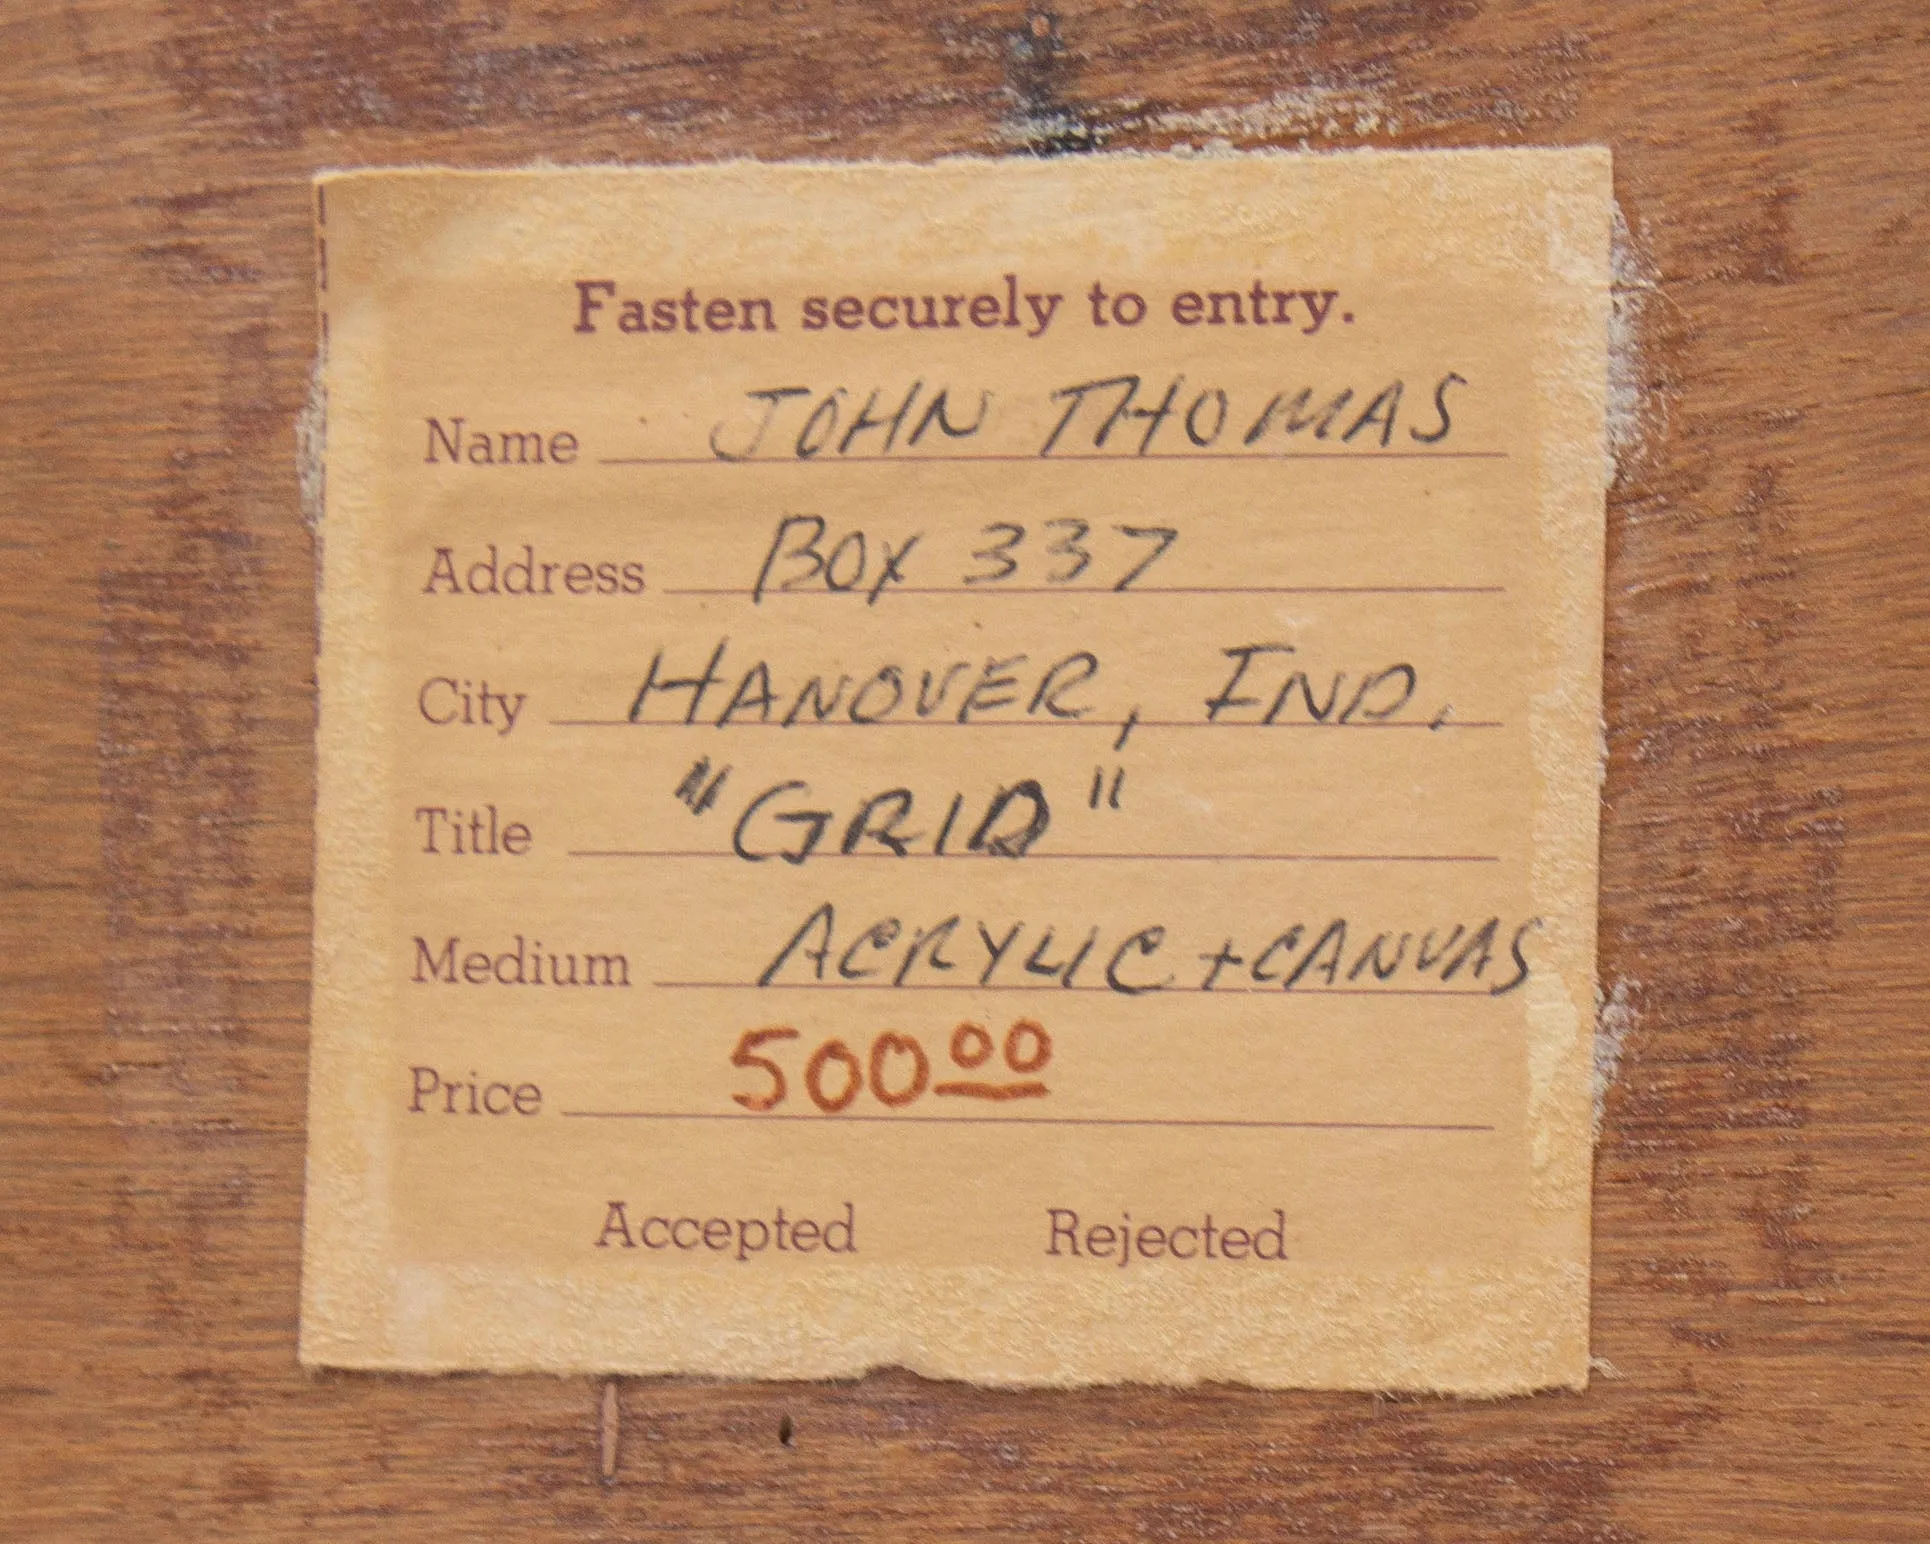 Fasten securely to entry.
Name JOHN THOMAS
Address BOX 337
City HANOVER, IND.
Title "GRID"
Medium ACRYLIC + CANVAS
Price 500.00
Accepted Rejected